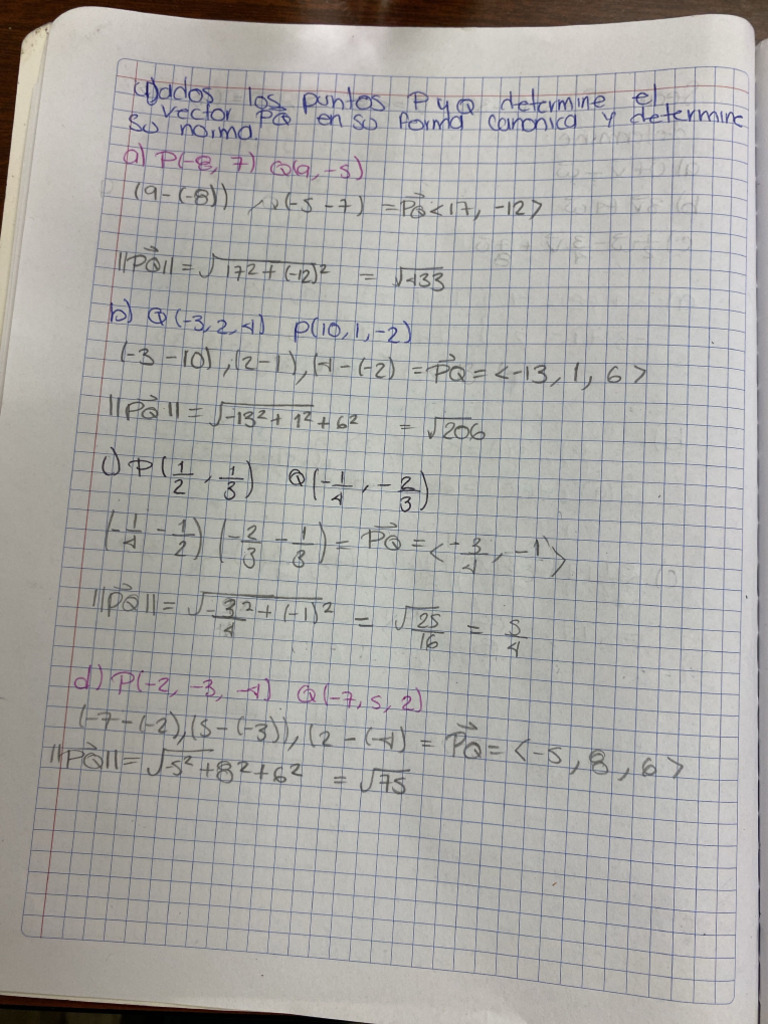 1) dados los puntos P y Q determine el
vector PQ en su forma canonica y determine
su norma.
a) P(-8, 7) Q(9, -5)
(9-(-8)) , (-5-7) = PQ⃗ <17, -12>
||PQ⃗|| = √17² + (-12)² = √433
b) Q(-3,2,4) P(10,1,-2)
(-3-10), (2-1), (4-(-2) = PQ⃗ = <-13, 1, 6>
||PQ⃗|| = √-13² + 1² + 6² = √206
c) P(1/2, 1/3) Q(-1/4, -2/3)
(-1/4 - 1/2) (-2/3 - 1/3) = PQ⃗ = <-3/4, -1>
||PQ⃗|| = √-3/4² + (-1)² = √25/16 = 5/4
d) P(-2, -3, -4) Q(-7, 5, 2)
(-7-(-2), (5-(-3)), (2-(-4) = PQ⃗ = <-5, 8, 6>
||PQ⃗|| = √5² + 8² + 6² = √75